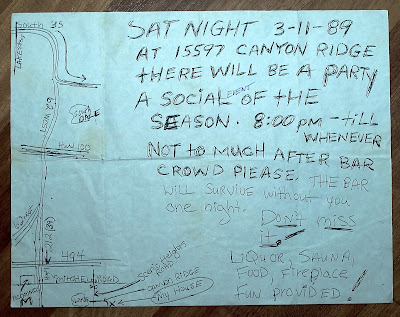 SAT NIGHT 3-11-89
AT 15597 CANYON RIDGE
THERE WILL BE A PARTY
A SOCIAL EVENT OF THE
SEASON. 8:00 pm - till
WHENEVER
NOT TO MUCH AFTER BAR
CROWD PLEASE. THE BAR
will survive without you
one night. Don't miss
it.
LIQUOR, SAUNA,
FOOD, Fireplace
FUN PROVIDED!
South 35
HW 100
494
CANYON RIDGE
My HOUSE